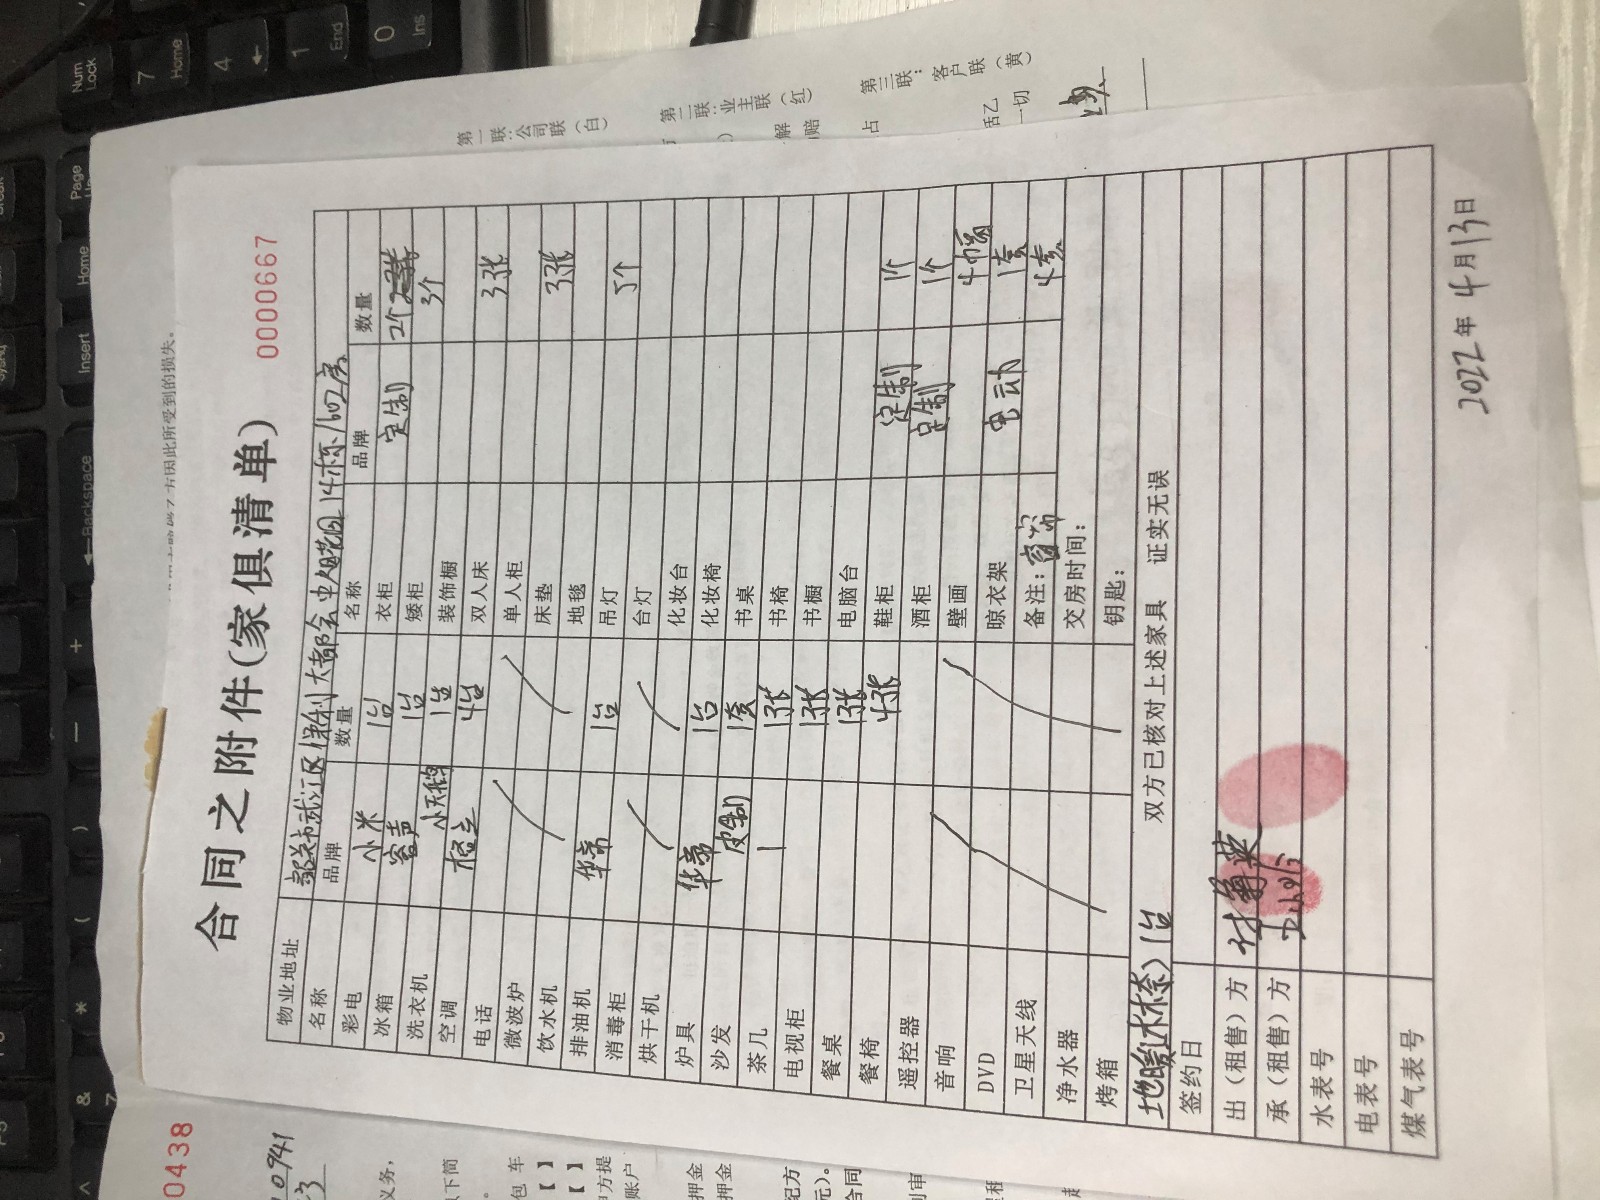 合同之附件(家俱清单)
0000667
物业地址 韶关市武江区保利大都会中央花园14栋1602房
名称 品牌 数量 名称 品牌 数量
彩电 小米 1台 衣柜 定制 2个
冰箱 容声 1台 矮柜 3个
洗衣机 小天鹅 1台 装饰橱
空调 格力 4台 双人床 3张
电话 单人柜
微波炉 床垫 3张
饮水机 地毯
排油机 华帝 1台 吊灯 5个
消毒柜 台灯
烘干机 化妆台
炉具 华帝 1台 化妆椅
沙发 皮制 1套 书桌
茶几 1张 书椅
电视柜 1张 书橱
餐桌 1张 电脑台
餐椅 4张 鞋柜 定制 1个
遥控器 酒柜 定制 1个
音响 壁画 4幅
DVD 晾衣架 电动 1套
卫星天线 备注：窗帘 4套
净水器 交房时间：
烤箱 钥匙：
1台 双方已核对上述家具 证实无误
签约日
出（租售）方
承（租售）方
水表号
电表号
煤气表号
2022年4月13日
第一联：公司联（白）
第二联：业主联（红）
第三联：客户联（黄）
解
赔
占
一切
因此所受到的损失。
0438
义务，
以下简
包 车
【 】
【 】
方提
账户
押金
押金
元）。
合同
Num Lock
7 Home
4 ←
1 End
0 Ins
Page
Home
Insert
←Backspace
+
—
)
(
*
&
7